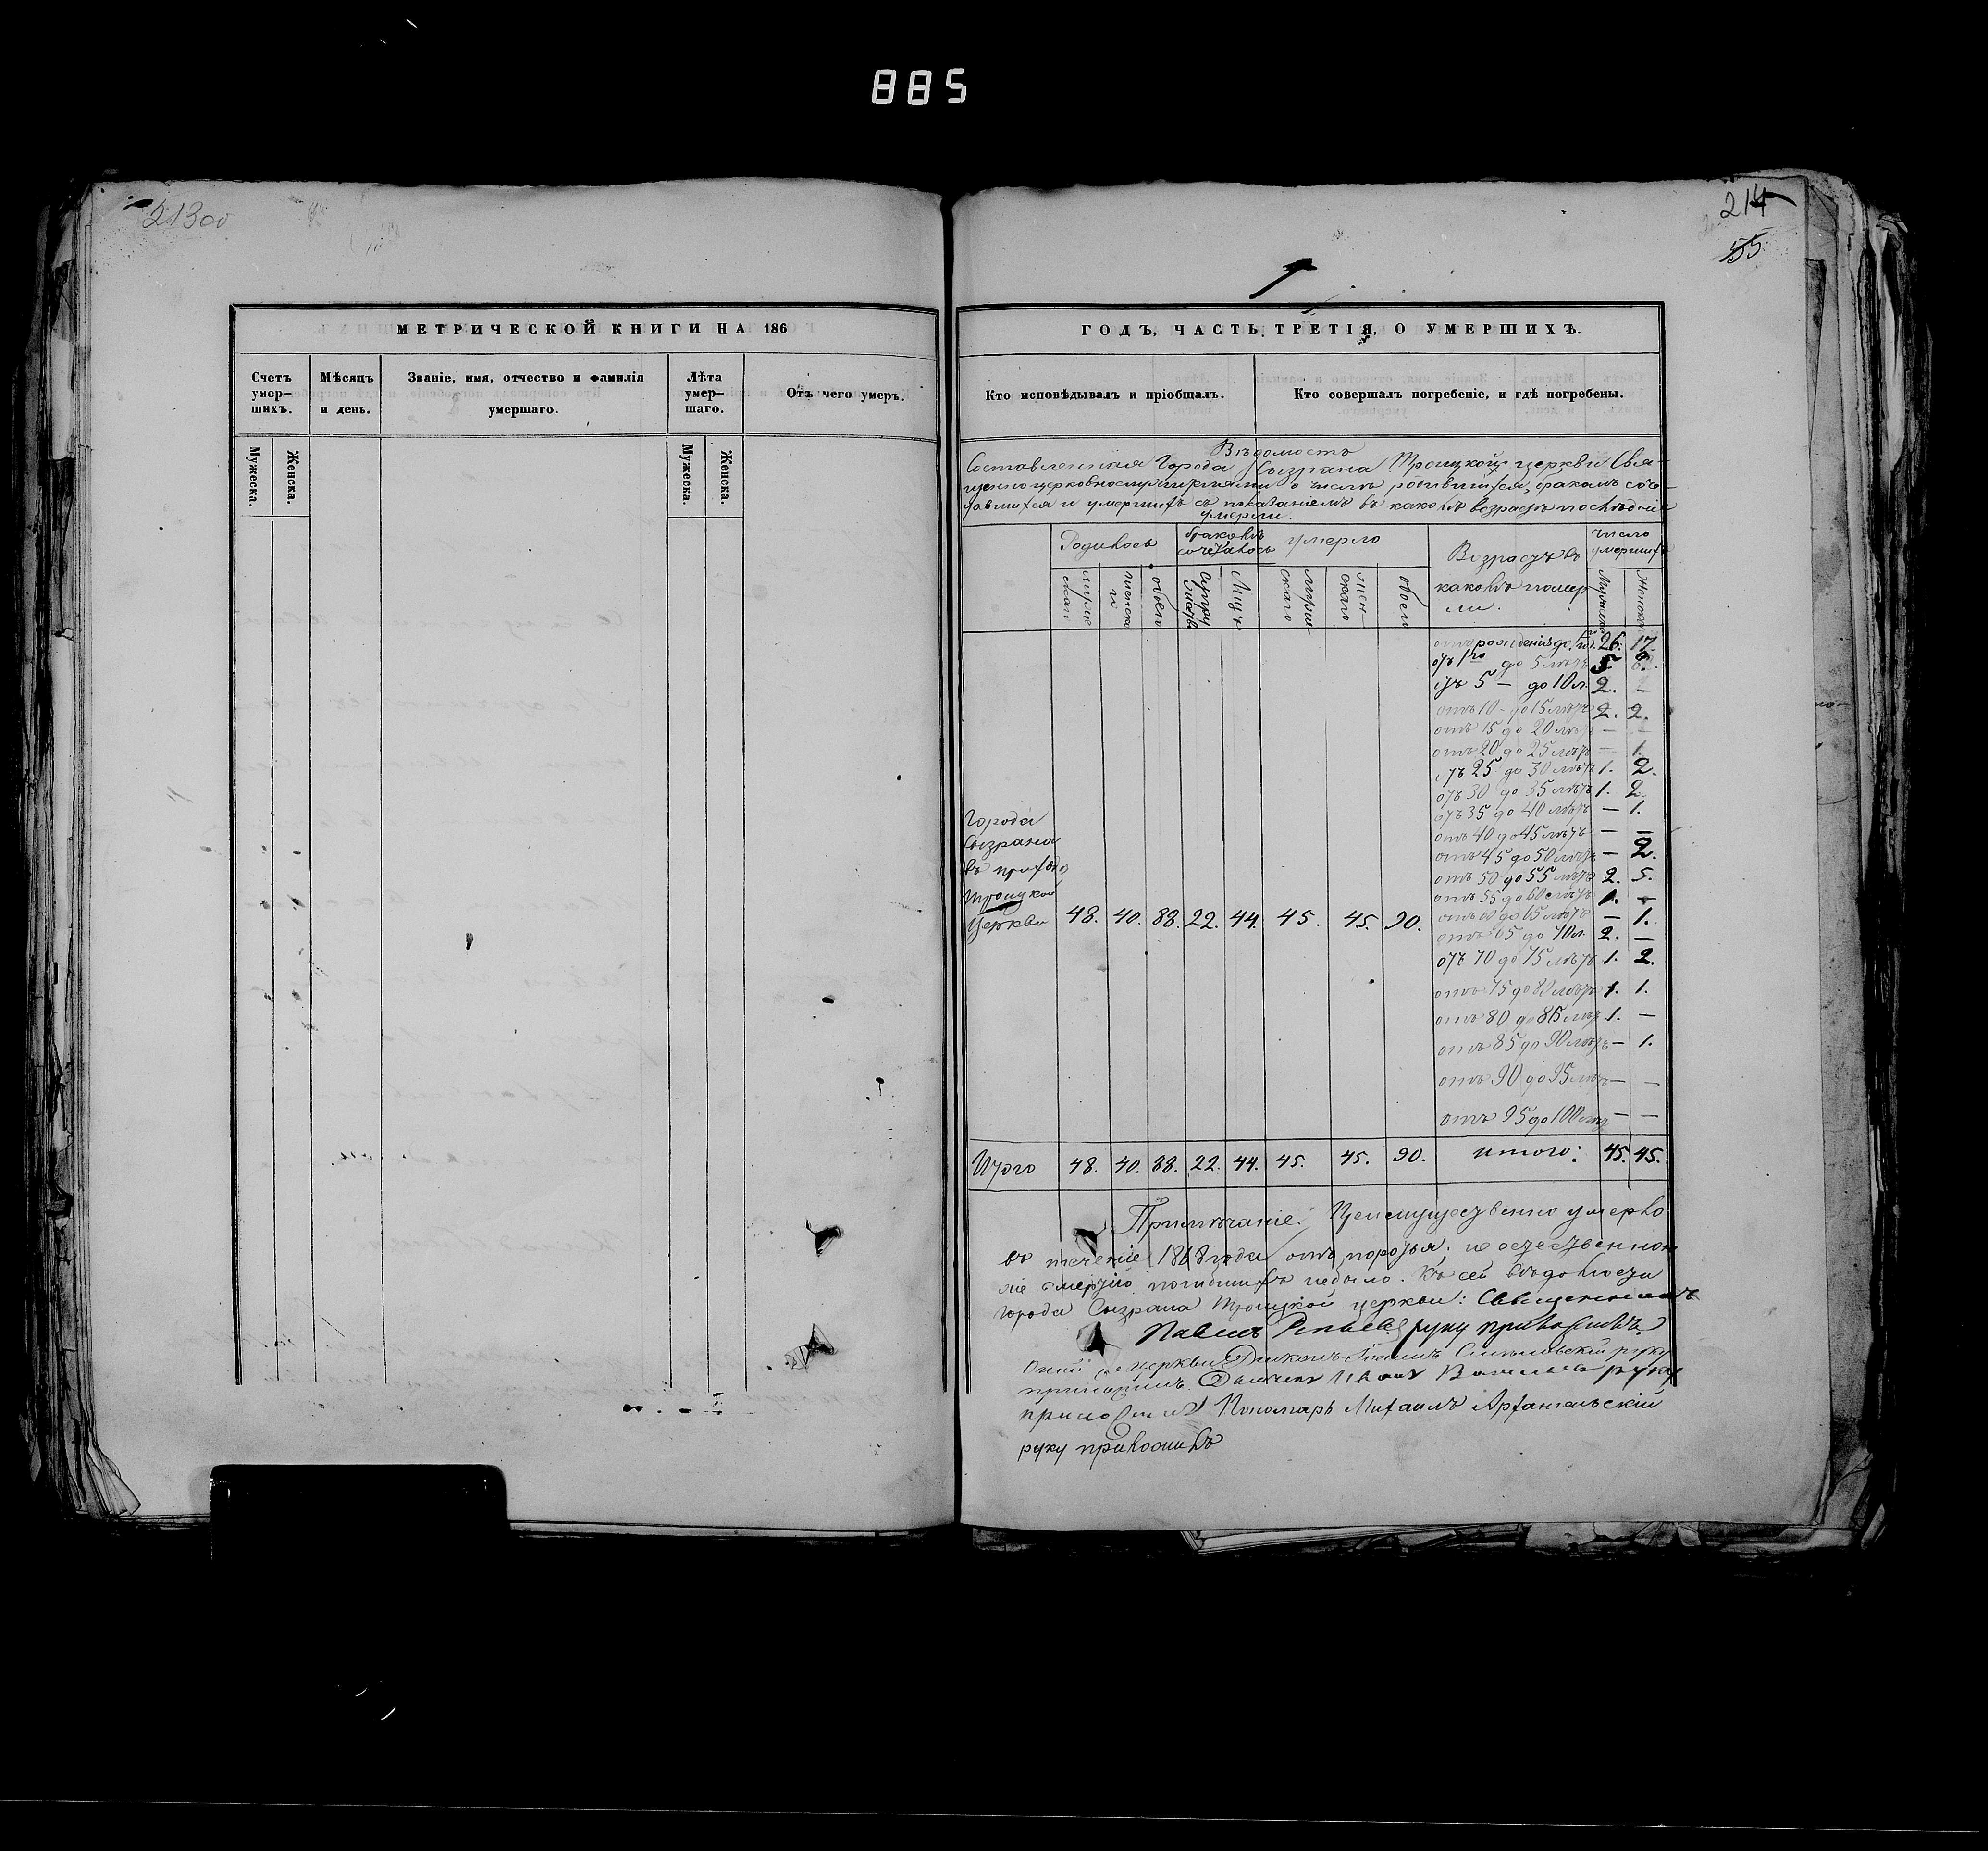 885
213об
214
55
МЕТРИЧЕСКОЙ КНИГИ НА 186
Счетъ умер-шихъ.
Мужеска.
Женска.
Мѣсяцъ и день.
Званіе, имя, отчество и фамилія умершаго.
Лѣта умер-шаго.
Мужеска.
Женска.
Отъ чего умеръ.
ГОДЪ, ЧАСТЬ ТРЕТІЯ, О УМЕРШИХЪ.
Кто исповѣдывалъ и пріобщалъ.
Кто совершалъ погребеніе, и гдѣ погребены.
Вѣдомость
Составленная Города Сызрана Троицкой церкви Свя-
щенноцерковнослужителями о числѣ родившихся, бракомъ соче-
тавшихся и умершихъ съ показаніемъ въ какомъ возрастѣ послѣдніе
умерли.
Родилось
браковъ сочеталось
умерло
Возрастъ въ какомъ помер
ли.
число умершихъ
мужескаго
женска
обоего
супружествъ
Лицъ
мужескаго
женскаго
обоего
Мужска
Женска
отъ рожденія до 1го г. 26. 17.
отъ 1го до 5 лѣтъ 5. 8.
отъ 5 — до 10 л. 2. —
отъ 10 — до 15 лѣтъ 2. 2.
отъ 15 до 20 лѣтъ — —
отъ 20 до 25 лѣтъ — 1.
отъ 25 до 30 лѣтъ 1. 2.
отъ 30 до 35 лѣтъ 1. 2.
отъ 35 до 40 лѣтъ — 1.
отъ 40 до 45 лѣтъ — —
отъ 45 до 50 лѣтъ — 2.
отъ 50 до 55 лѣтъ 2. 5.
отъ 55 до 60 лѣтъ 1. —
отъ 60 до 65 лѣтъ — 1.
отъ 65 до 70 л. 2. —
отъ 70 до 75 лѣтъ 1. 2.
отъ 75 до 80 лѣтъ 1. 1.
отъ 80 до 85 лѣтъ 1. —
отъ 85 до 90 лѣтъ — 1.
отъ 90 до 95 лѣтъ — —
отъ 95 до 100 лѣтъ — —
Города
Сызрана
въ приходѣ
Троицкой
Церкви 48. 40. 88. 22. 44. 45. 45. 90.
Итого 48. 40. 88. 22. 44. 45. 45. 90. итого: 45. 45.
Примѣчаніе: Преимущественно умерло
въ теченіе 1868 года отъ
смертію погибшихъ небыло. Къ сей вѣдомости
города Сызрана Троицкой церкви: Священникъ
Павелъ руку приложилъ.
церкви Діаконъ руку
приложилъ. Иванъ руку
приложилъ Пономарь Михаилъ Архангельскій
руку приложилъ